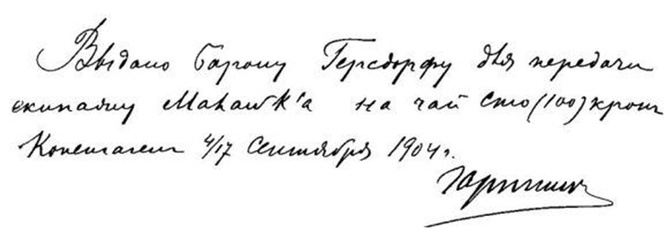 Выдано барону Герсдорфу для передачи
экипажу Mahawk'а на чай сто (100) крон
Копенгаген 4/17 Сентября 1904 г.